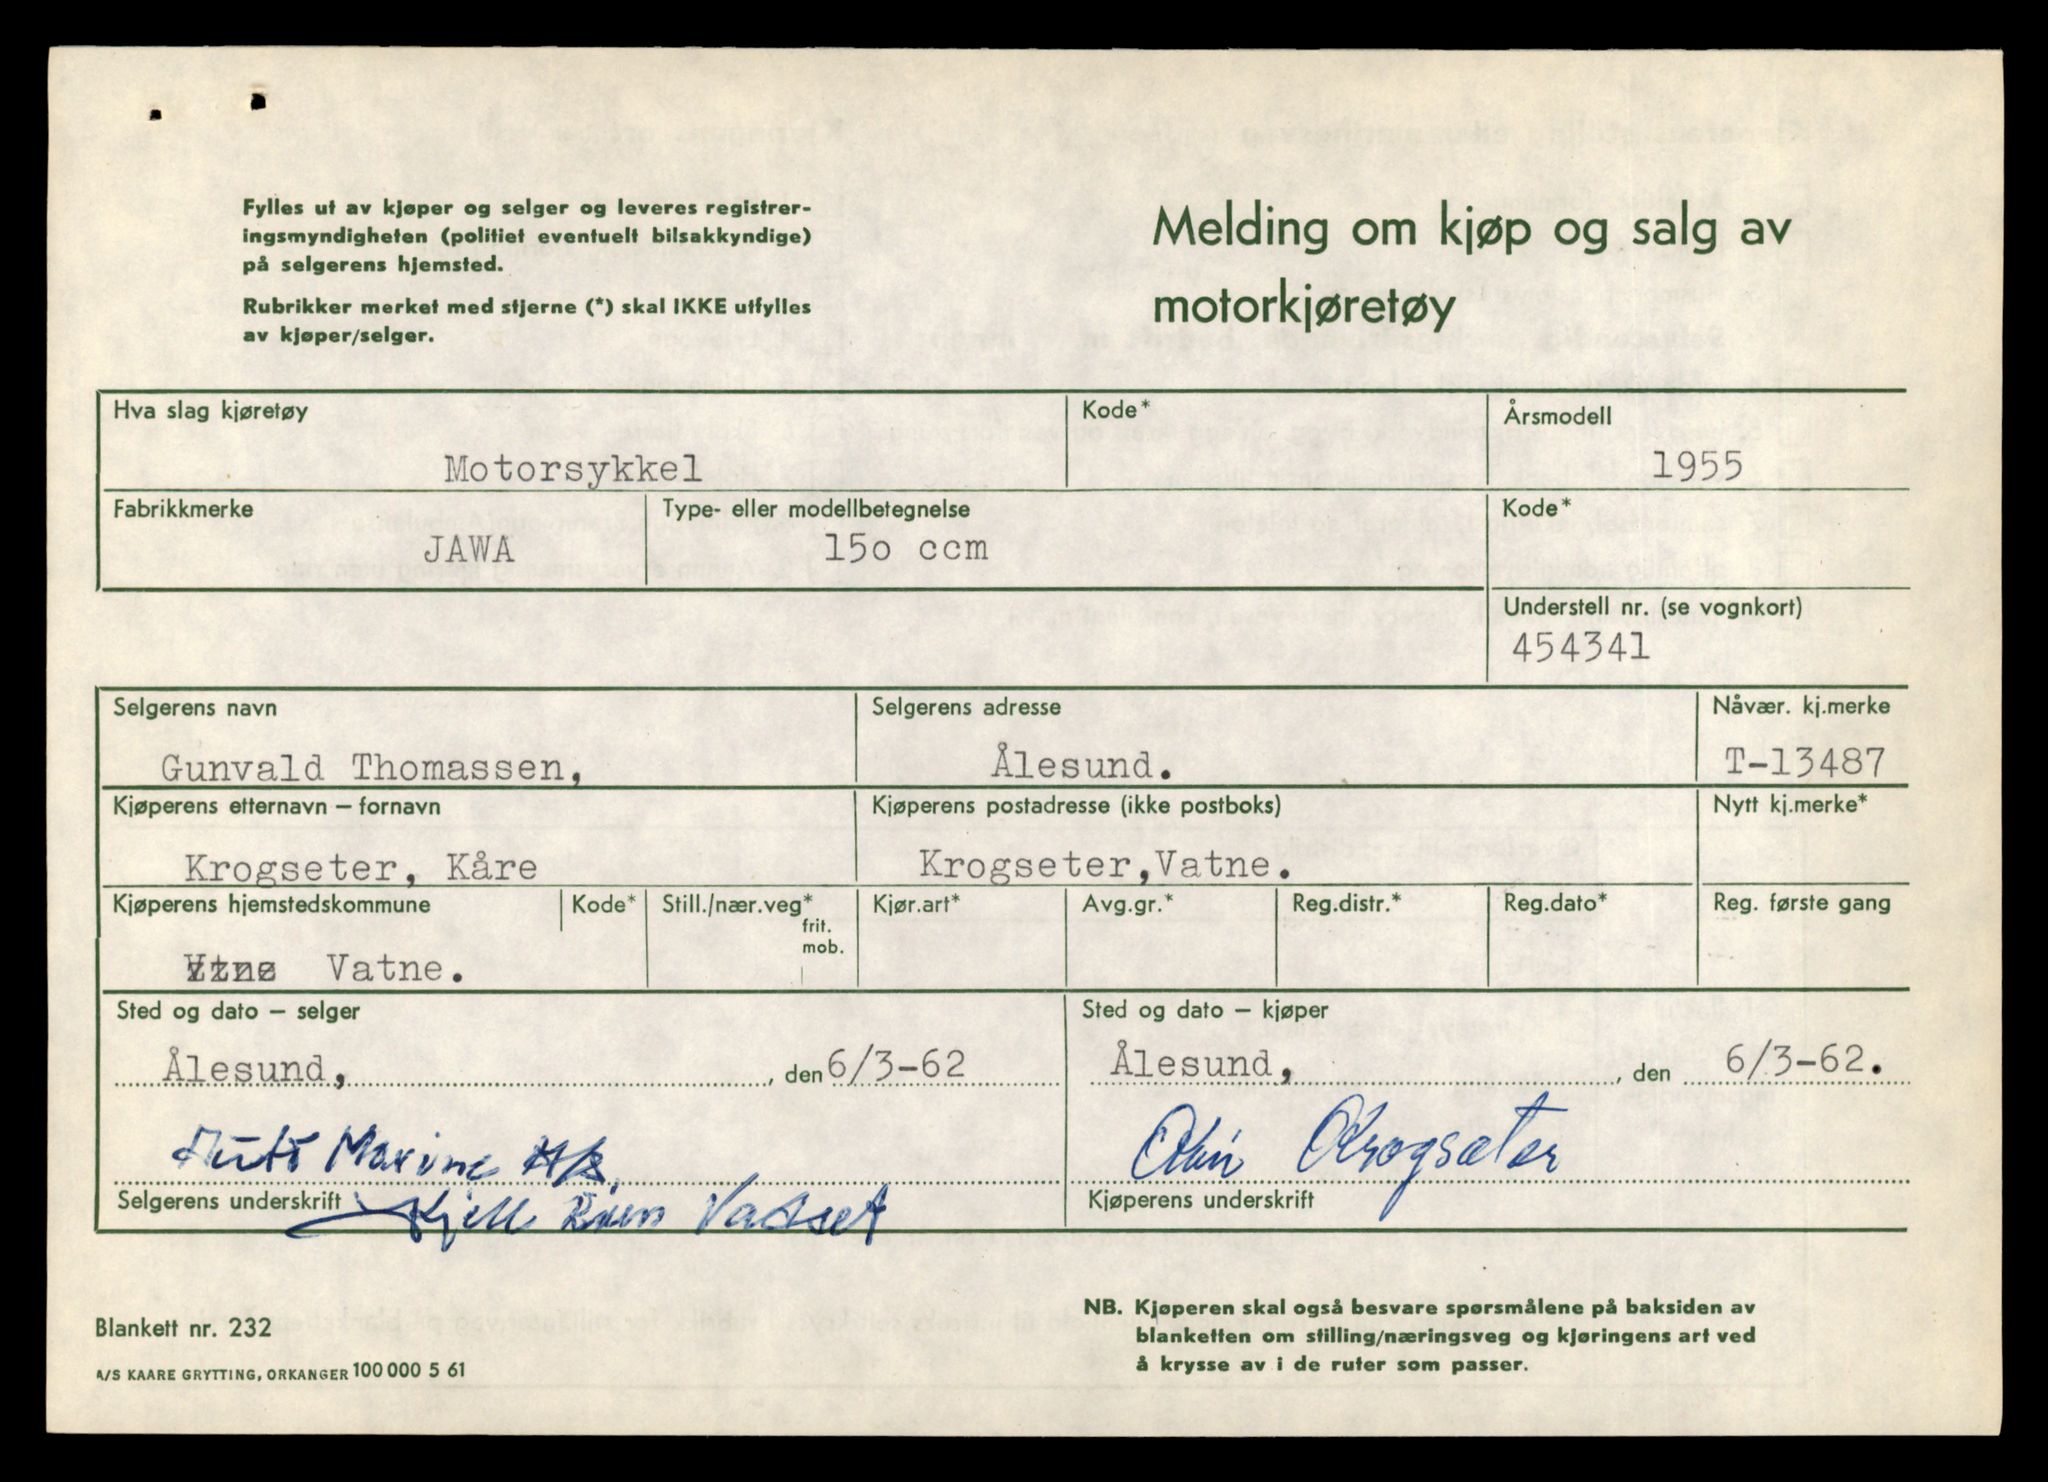 Fylles ut av kjøper og selger og leveres registrer-
ingsmyndigheten (politiet eventuelt bilsakkyndige)
på selgerens hjemsted.
Rubrikker merket med stjerne (*) skal IKKE utfylles
av kjøper/selger.
Melding om kjøp og salg av
motorkjøretøy
Hva slag kjøretøy
Motorsykkel
Kode*
Årsmodell
1955
Fabrikkmerke
JAWA
Type- eller modellbetegnelse
15o ccm
Kode*
Understell nr. (se vognkort)
454341
Selgerens navn
Gunvald Thomassen,
Selgerens adresse
Ålesund.
Nåvær. kj.merke
T-13487
Kjøperens etternavn – fornavn
Krogseter, Kåre
Kjøperens postadresse (ikke postboks)
Krogseter,Vatne.
Nytt kj.merke*
Kjøperens hjemstedskommune
Vatne.
Kode*
Still./nær.veg*
frit.
mob.
Kjør.art*
Avg.gr.*
Reg.distr.*
Reg.dato*
Reg. første gang
Sted og dato – selger
Ålesund, , den 6/3-62
Sted og dato – kjøper
Ålesund, , den 6/3-62.
Auto Marine A/S
Selgerens underskrift
Kjell Vadset
Krogsæter
Kjøperens underskrift
Blankett nr. 232
A/S KAARE GRYTTING, ORKANGER 100 000 5 61
NB. Kjøperen skal også besvare spørsmålene på baksiden av
blanketten om stilling/næringsveg og kjøringens art ved
å krysse av i de ruter som passer.